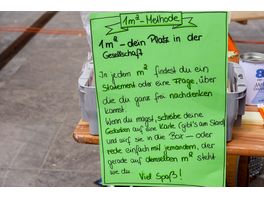 1m²-Methode
1m² - dein Platz in der
Gesellschaft
In jedem m² findest du ein
Statement oder eine Frage, über
die du ganz frei nachdenken
kannst.
Wenn du magst, schreibe deine
Gedanken auf eine Karte (gibt's am Stand)
und wirf sie in die Box - oder
rede einfach mit jemandem, der
gerade auf demselben m² steht
wie du.
Viel Spaß!